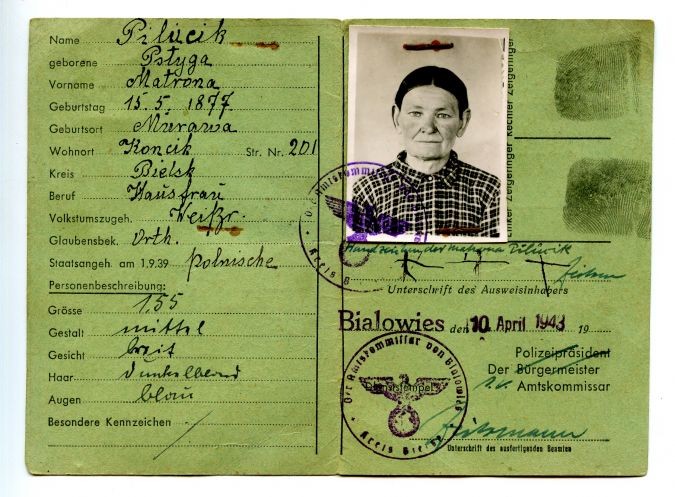 Name Pilucik
geborene Pstyga
Vorname Matrona
Geburtstag 15.5.1877
Geburtsort Murawa
Wohnort Koncik Str. Nr. 201
Kreis Bielsk
Beruf Hausfrau
Volkstumszugeh. Weißr.
Glaubensbek. Orth.
Staatsangeh. am 1.9.39 polnische
Personenbeschreibung:
Grösse 1,55
Gestalt mittel
Gesicht breit
Haar dunkelblond
Augen blau
Besondere Kennzeichen
Zeigefinger
rechter Zeigefinger
Der Amtskommissar
Kreis B
Handzeichen der Matrona Pilucik
Unterschrift des Ausweisinhabers
Bialowies den 10. April 1943 19
Polizeipräsident
Der Bürgermeister
Amtskommissar
Dienststempel
Der Amtskommissar von Bialowies
Kreis Bielsk
Unterschrift des ausfertigenden Beamten